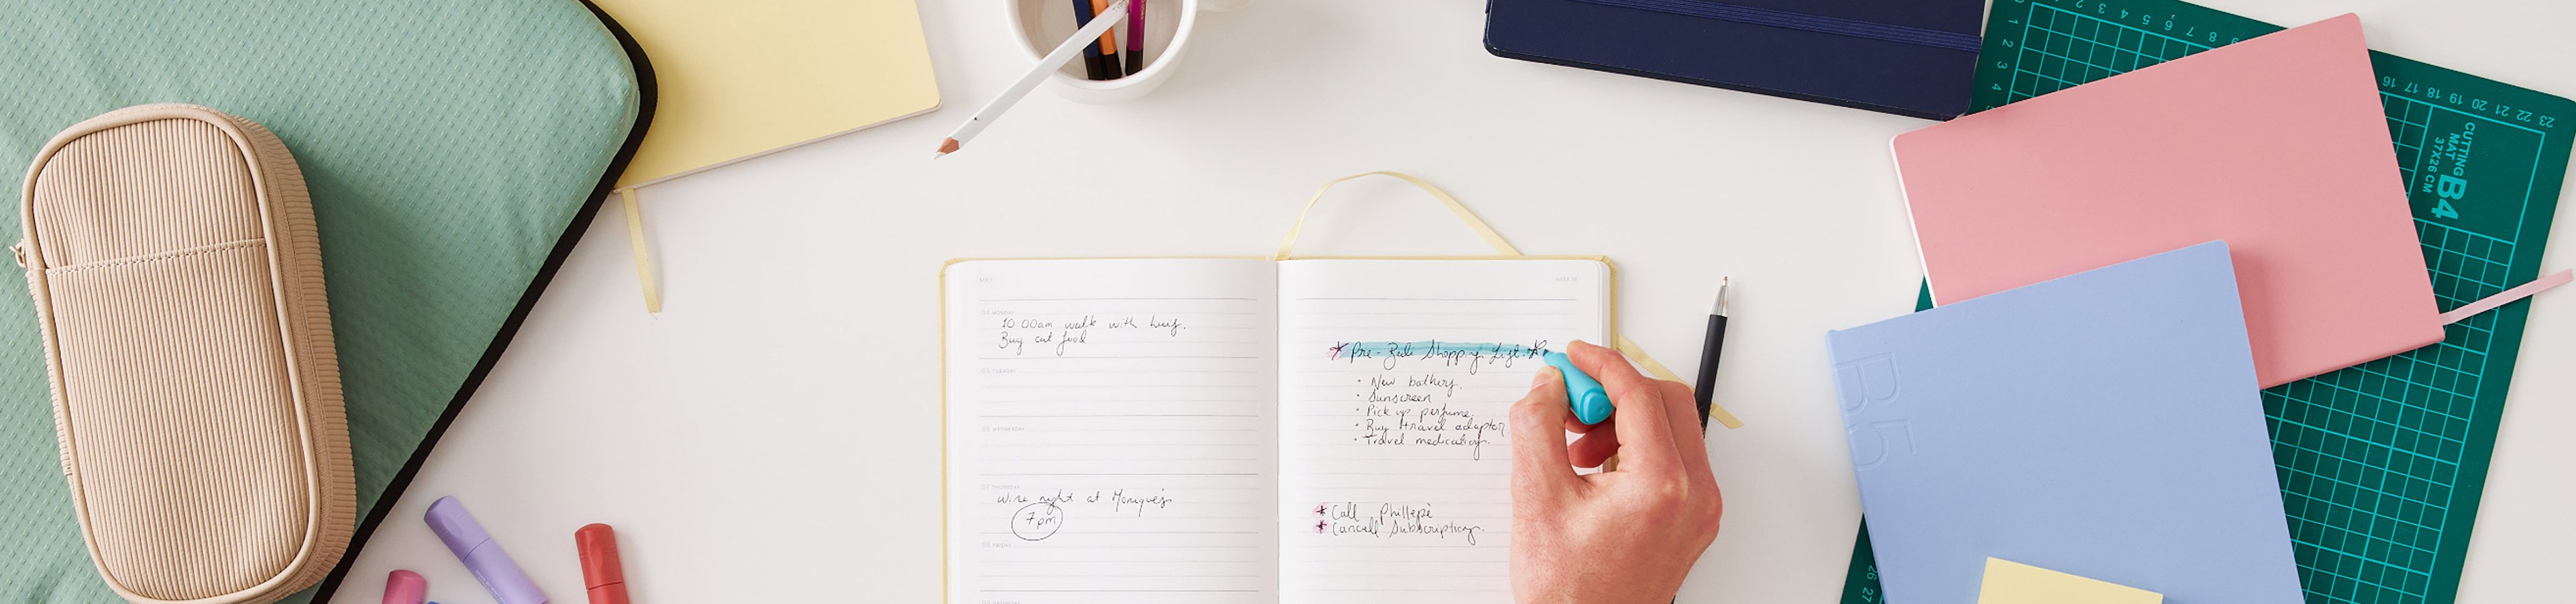 MAY
WEEK 19
04 MONDAY
10:00am walk with
Buy cat food
05 TUESDAY
06 WEDNESDAY
07 THURSDAY
Wine night at Monique's
7pm
08 FRIDAY
09 SATURDAY
* Pre-Bali Shopping List *
• New battery.
• Sunscreen
• Pick up perfume.
• Buy travel adaptor.
• Travel medication.
* Call Phillepe
* Cancell Subscription.
B5
CUTTING
MAT
37X26 CM
B4
1 2 3 4
2 3 4 5 6 7 8 9
16 17 18 19 20 21 22 23
26 27